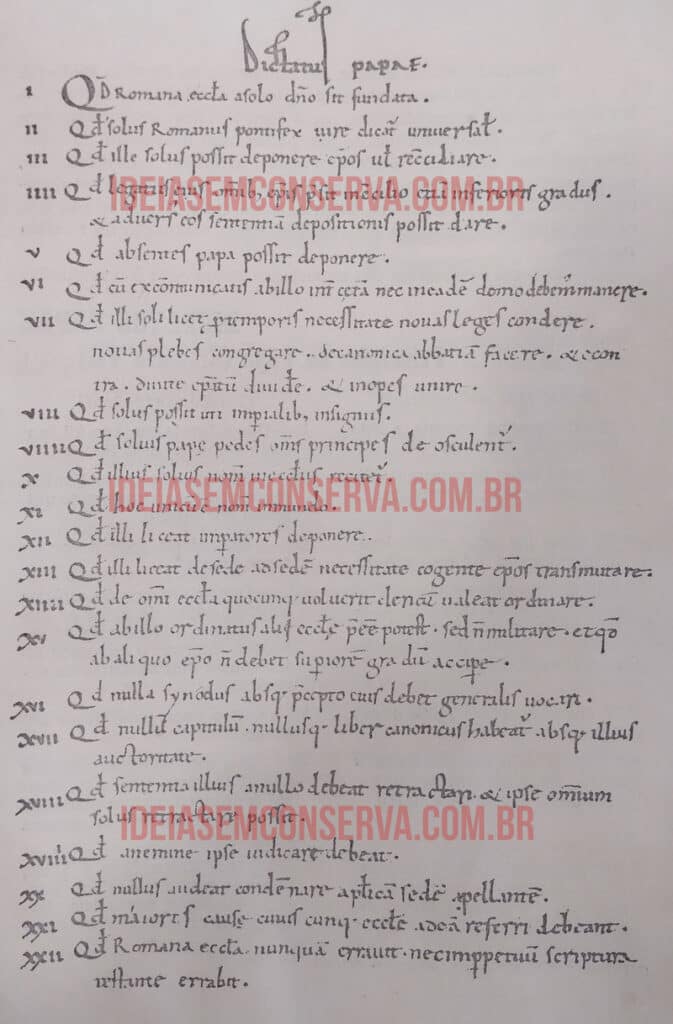 Dictatus papae.
I Qđ Romana eccła a solo dño sit fundata.
II Qđ solus Romanus pontifex iure dicat' universał.
III Qđ ille solus possit deponere ep̄os uł recc̄iliare.
IIII Qđ legatus eius omīb; ep̄is p̄sit in cc̄ilio etiā inferioris gradus.
IDEIASEMCONSERVA.COM.BR
& advers' eos sententiā depositionis possit dare.
V Qđ absentes papa possit deponere.
VI Qđ cū exc̄ommunicatis ab illo int̄ cetera nec in eadē domo debem' manere.
VII Qđ illi soli licet p̄ temporis necessitate novas leges condere.
novas plebes congregare. de canonica abbatiā facere. & e con
tra. divite ep̄atū divide. & inopes unire.
VIII Qđ solus possit uti imp̄ialib; insigniis.
VIIII Qđ solius papę pedes om̄s principes deosculent'.
X Qđ illius solius nom̄ in eccłiis recitet'.
IDEIASEMCONSERVA.COM.BR
XI Qđ hoc unicū ē nom̄ in mundo.
XII Qđ illi liceat imp̄atores deponere.
XIII Qđ illi liceat de sede ad sedē necessitate cogente ep̄os transmutare.
XIIII Qđ de om̄i eccła quocunq; voluerit clericū valeat ordinare.
XV Qđ ab illo ordinatus alii eccłę p̄ēē potest. sed ñ militare. et qđ
ab aliquo ep̄o ñ debet sup̄iorē gradū accipe.
XVI Qđ nulla synodus absq; p̄cepto eius debet generalis vocari.
XVII Qđ nullū capitulū. nullusq; liber canonicus habeat' absq; illius
auctoritate.
XVIII Qđ sententia illius a nullo debeat retractari. & ipse om̄ium
solus retractare possit.
IDEIASEMCONSERVA.COM.BR
XVIIII Qđ a nemine ipse iudicare debeat.
XX Qđ nullus audeat condēnare apłicā sedē apellantē.
XXI Qđ maiores cause cuiuscunq; eccłę ad eā referri debeant.
XXII Qđ Romana eccła. nunquā erravit. nec imp̄petuū scriptura
testante errabit.